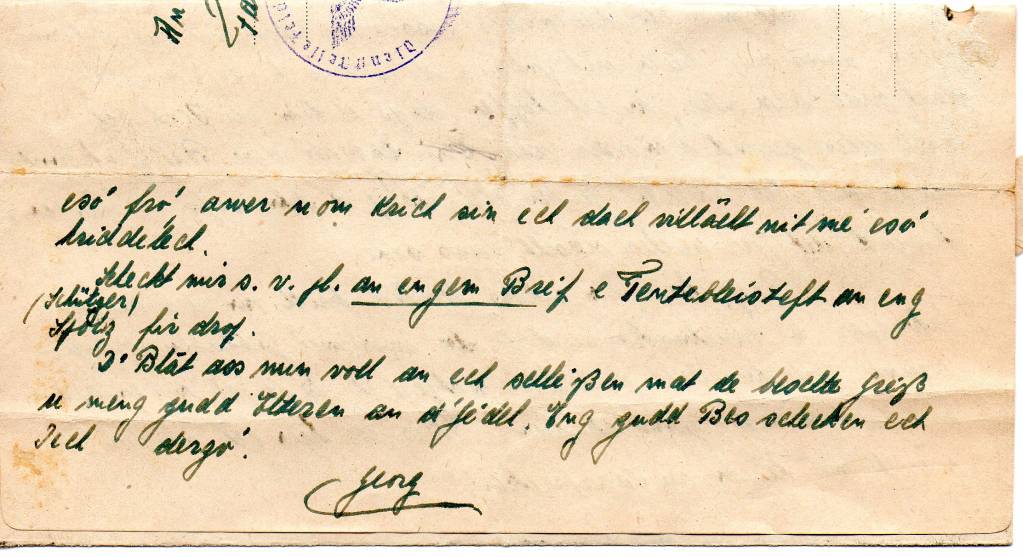 An
Dienststelle Feld
esó fró, awer vom Krich sin ech dach villäeit nit mé esó
kriddelech.
Scheckt mir s. v. pl. an engem Breif e Tentebleisteft an eng
(Schützer)
Spötz fir drof.
D'Blät ass nun voll an ech schleißen mat de beschte Greiß
u meng gudd Elteren an d'Jédel. Eng gudd Bes schecken ech
Iech derzó.
Georg